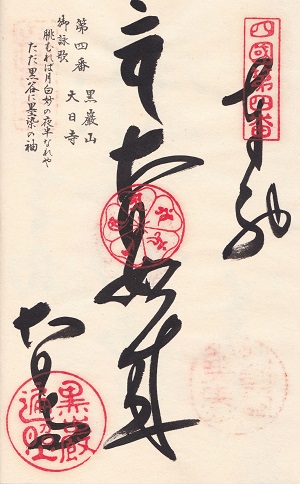 四國第四番
奉納
大日如来
第四番 黒巖山
大日寺
御詠歌
眺むれば月白妙の夜半なれや
ただ黒谷に墨染の袖
大日寺
黒巖
遍照